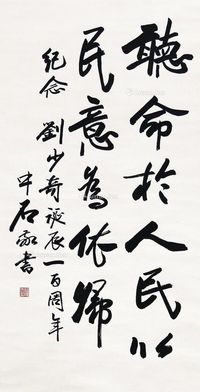 聽命於人民以
民意為依歸
紀念劉少奇誕辰一百周年
中石敬書